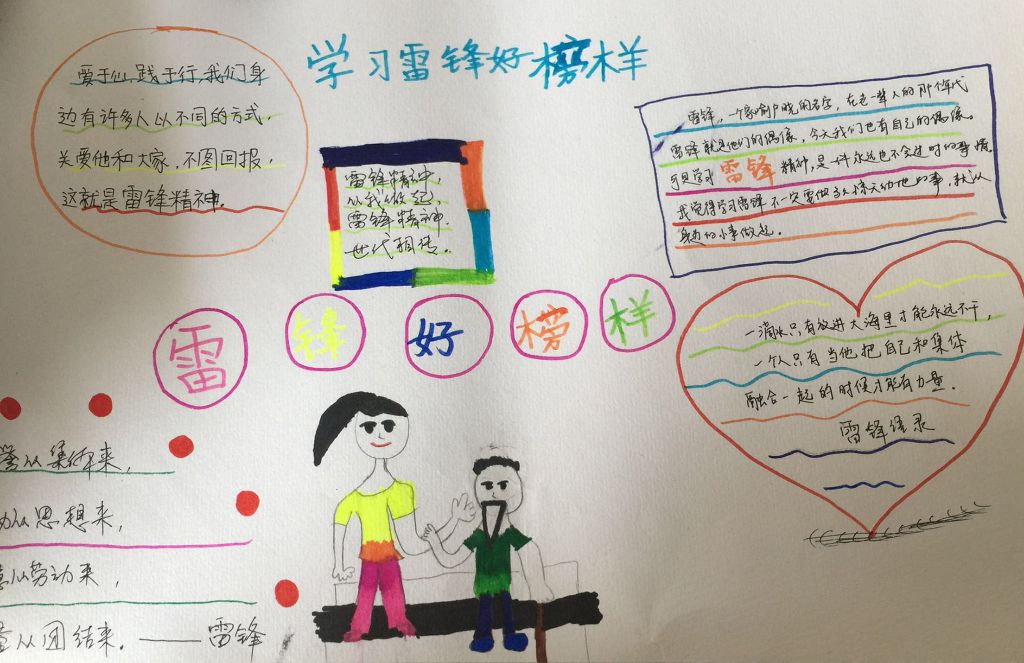 学习雷锋好榜样
爱于心,践于行,我们身
边有许多人以不同的方式,
关爱他和大家,不图回报,
这就是雷锋精神.
雷锋精神,
从我做起,
雷锋精神.
世代相传。
雷锋,一个家喻户晓的名字,在老一辈人的那个年代
雷锋就是他们的偶像,今天我们也有自己的偶像。
可见学习雷锋精神,是一件永远也不会过时的事情.
我觉得学习雷锋不一定要做多么惊天动地的事,就从
身边的小事做起.
雷锋好榜样
一滴水只有放进大海里才能永远不干,
一个人只有当他把自己和集体
融合一起的时候才能有力量.
雷锋语录
誉从集体来,
从思想来,
从劳动来,
从团结来.——雷锋